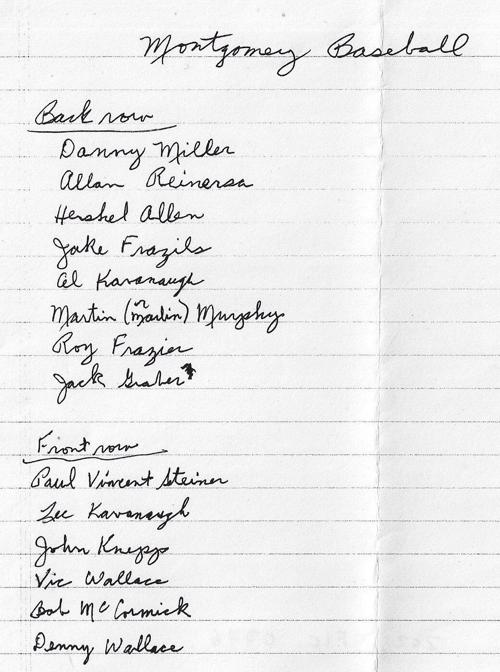 Montgomey Baseball
Back row
Danny Miller
Allan Reinersa
Hershel Allen
Jake Frazils
Al Kavanaugh
Martin (or Marlin) Murphy
Roy Frazier
Jack Graber
Front row
Paul Vincent Steiner
Lee Kavanaugh
John Knepp
Vic Wallace
Bob McCormick
Denny Wallace